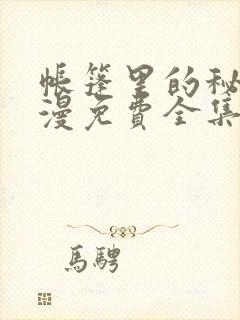 帐篷里的秘
漫免费全集
馬騁